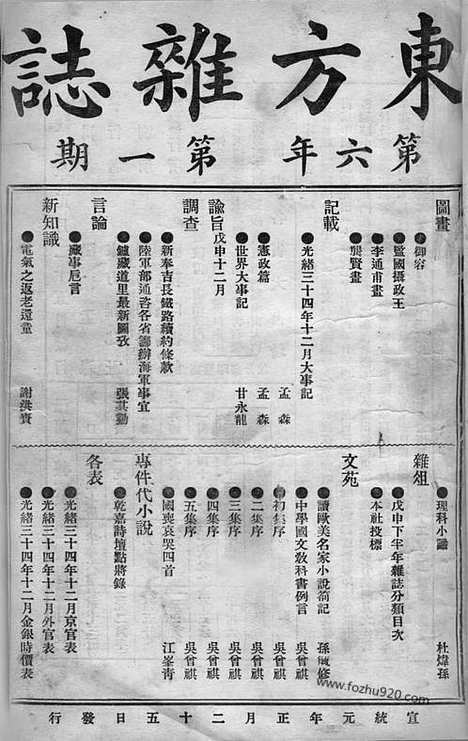 東方雜誌
第六年第一期
圖畫
●御容
●監國攝政王
●李通甫畫
●龔賢畫
記載
●光緒三十四年十二月大事記 孟森
●憲政篇 孟森
●世界大事記 甘永龍
諭旨 戊申十二月
調查
●新奉吉長鐵路續約條款
●陸軍部通咨各省籌辦海軍事宜
●鑪藏道里最新圖攷 張其勤
言論
●藏事卮言
新知識
●電氣之返老還童 謝洪賚
雜俎
●理科小識 杜煒孫
●戊申下半年雜誌分類目次
●本社投標
文苑
●讀歐美名家小說劄記 孫毓修
●中學國文教科書例言 吳曾祺
●初集序 吳曾祺
●二集序 吳曾祺
●三集序 吳曾祺
●四集序 吳曾祺
●五集序 吳曾祺
●國喪哀哭四首 江峯青
事件代小說
●乾嘉詩壇點將錄
各表
●光緒三十四年十二月京官表
●光緒三十四年十二月外官表
●光緒三十四年十二月金銀時價表
宣統元年正月二十五日發行
www.fozhu920.com